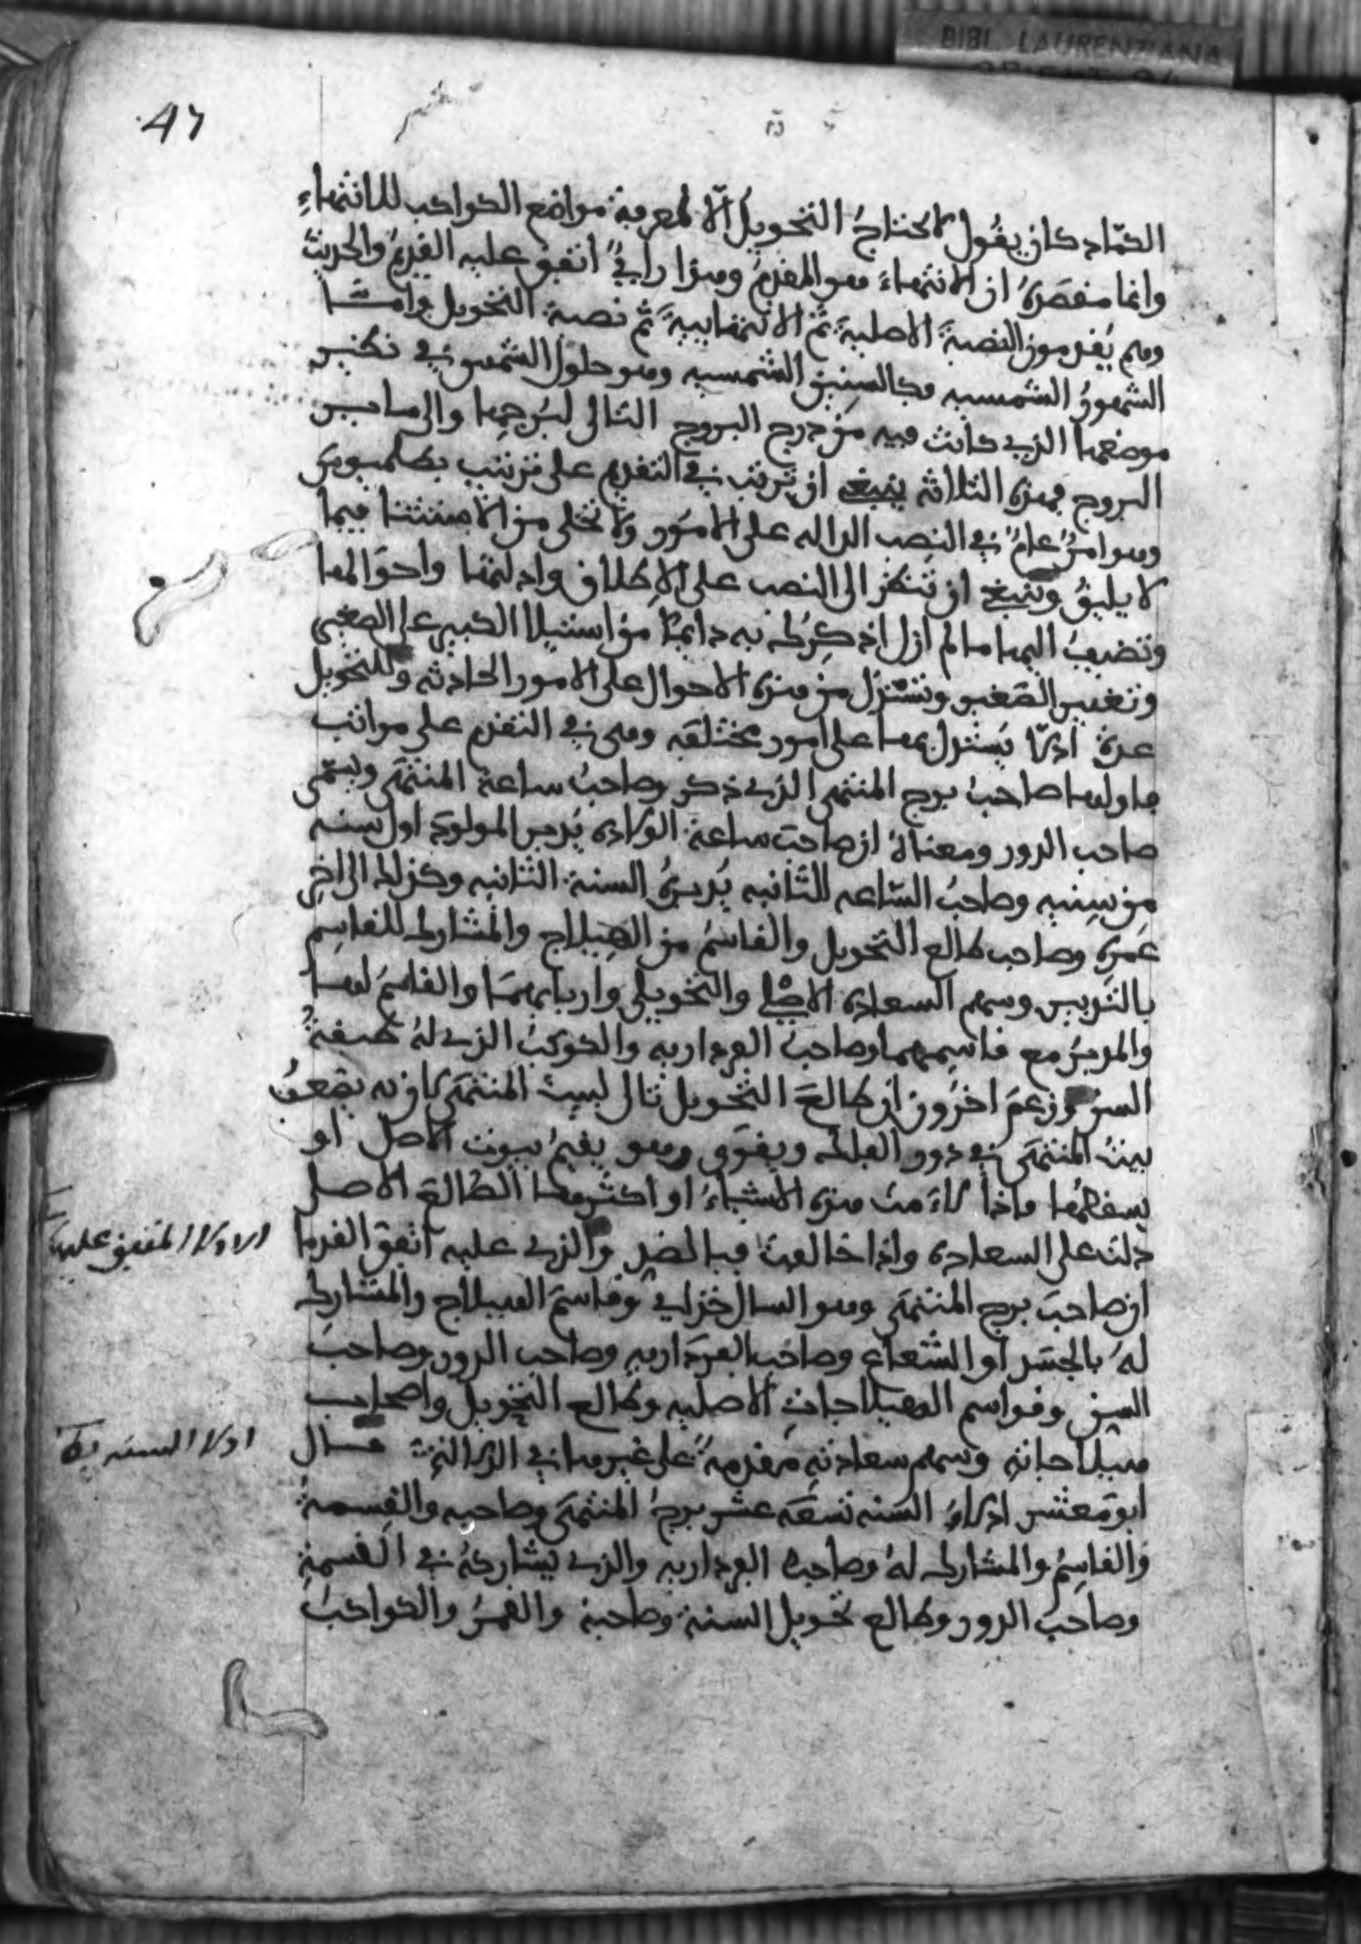 BIBL. LAURENZIANA
47
الكمّاد كان يقول لا يُحتاج التحويل الّا لمعرفة مواضع الكواكب للانتهاء
وانما مقصَده ان الانتهاء هو المقدم وهذا رايٌ اتفق عليه القديم والحديث
وهم يُقدمون النصبةَ الاصليةَ ثم الانتهاييةَ ثم نصبة التحويل وامّا
الشهورُ الشمسيه فكالسنين الشمسيه وهو حلول الشمس في نظير
موضعها الذي كانت فيه من درج البروج التالى لبُرجِها والى ساير
البروج فهذه الثلاثه ينبغي ان تُرتب في التقديم على ترتيب بطلميوس
وهو امرٌ عامٌ في النصب الداله على الامور ولا تخلى من الاستثنا فيما
لا يليقُ وينبغي ان تنظر الى النصب على الاطلاق وادلتها واحوالها
وتضيفَ اليها ما لم ازل اذكرك به دايمًا من استيلا الكبير على الصغير
وتغيير الصغير وتستدِل من هذه الاحوال على الامور الحادثه وللتحويل
عدة ادلّا يُستدل بها على امور مختلفه وهى في التقدم على مراتب
فاولها صاحبُ برج المنتهى الذي ذكر وصاحبُ ساعة المنتهَى ويسمّى
صاحب الدور ومعناهُ ان صاحبَ ساعة الولاده يُدبر المولودَ اول سنه
من سِنيه وصاحبُ السّاعه الثانيه يُدبرُه السنة الثانيه وكذلك الى اخِر
عمره وصاحب طالع التحويل والقاسمُ من الهيلاج والمشارك للقاسِم
بالتدبير وسهم السعاده الاصلي والتحويلي واربابهما والقاسم لهما
والمدبرُ مع قاسمِهما وصاحبُ الفرداريه والكوكبُ الذي لهُ طبيعةُ
السن وزعمَ اخرُون ان طالعَ التحويل تال لبيت المنتهَى كانه يضعفُ
بيتُ المنتهَى في دور الفلك ويقوى وهو يقيمُ بيوت الاصل او
يسقطُها فاذا لاءَمت هذه الاشياءُ او اكثرها الطالعَ الاصلى
دلت على السعاده واذا خالفت فبالضد والذي عليه اتفق القدما
ان صاحبَ برج المنتهَى وهو السالخذاي وقاسمَ الهيلاج والمشاركَ
لهُ بالجسَد او الشعاع وصاحبَ الفرداريه وصاحب الدور وصاحبَ
السن وقواسم الهيلاجات الاصليه وطالع التحويل واصحاب
هيلاجاته وسهم سعادته مقدمهً على غيرها في الدلالةِ قال
ابو معشر ادلاءُ السنه تسعَه عشر برجُ المنتهَى وصاحبه والقسمةُ
والقاسِمُ والمشارك لهُ وصاحبُ الفرداريه والذي يشاركهُ في القسمة
وصاحبُ الدور وطالع تحويل السنة وصاحبهُ والقمرُ والكواكبُ
الادلا المتفق عليها
ادلا السنه يط